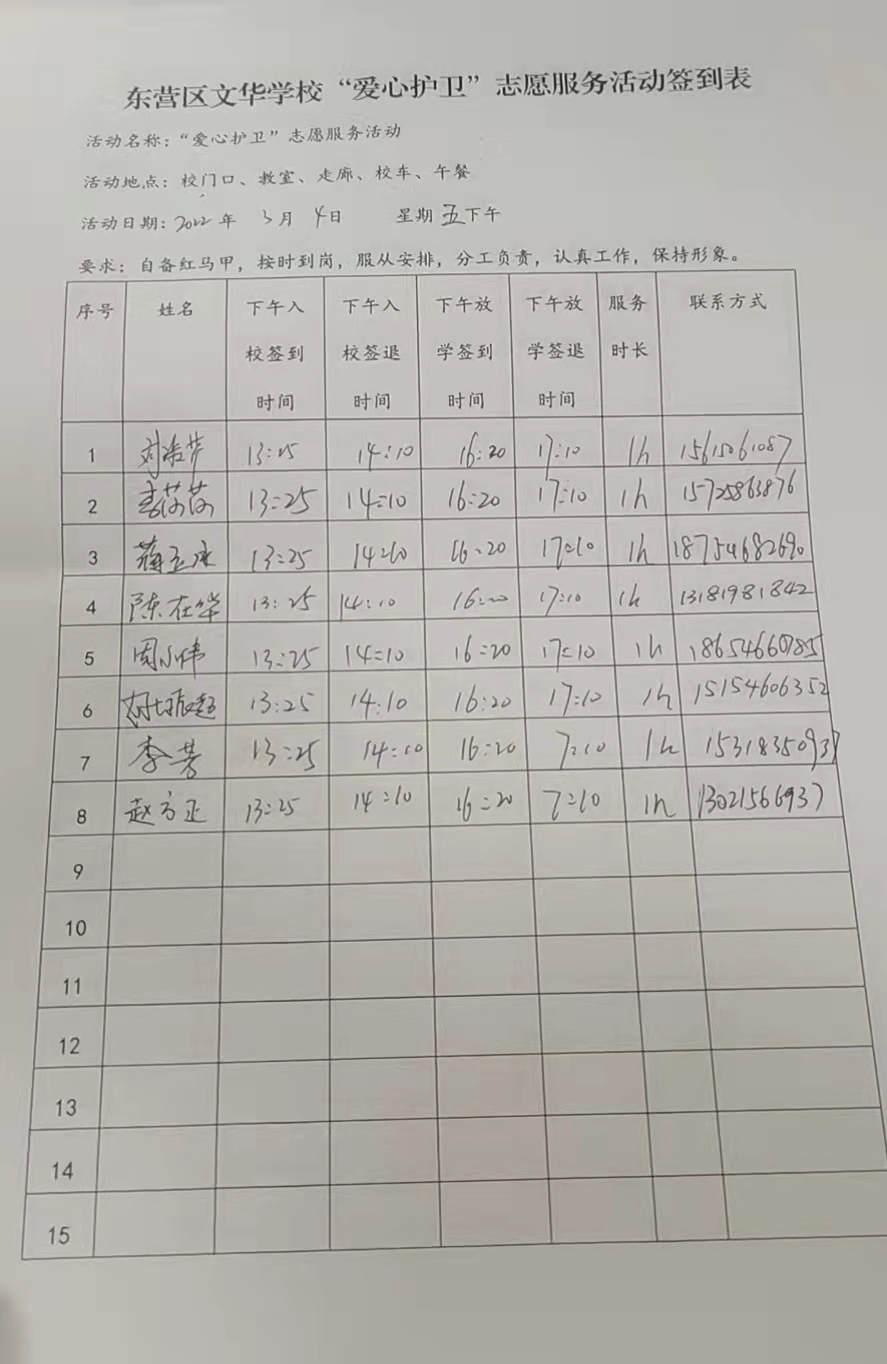 东营区文华学校“爱心护卫”志愿服务活动签到表
活动名称：“爱心护卫”志愿服务活动
活动地点：校门口、教室、走廊、校车、午餐
活动日期：2022 年 3 月 4 日 星期 五 下午
要求：自备红马甲，按时到岗，服从安排，分工负责，认真工作，保持形象。
序号 姓名 下午入校签到时间 下午入校签退时间 下午放学签到时间 下午放学签退时间 服务时长 联系方式
1 13:25 14:10 16:20 17:10 1h 15615061087
2 13:25 14:10 16:20 17:10 1h 15725863876
3 蒋玉冰 13:25 14:10 16:20 17:10 1h 18754682690
4 陈在华 13:25 14:10 16:20 17:10 1h 13181981842
5 周小伟 13:25 14:10 16:20 17:10 1h
6 13:25 14:10 16:20 17:10 1h 15154606352
7 李芳 13:25 14:10 16:20 7:10 1h 15318350937
8 赵方正 13:25 14:10 16:20 7:10 1h 13021566937
9
10
11
12
13
14
15